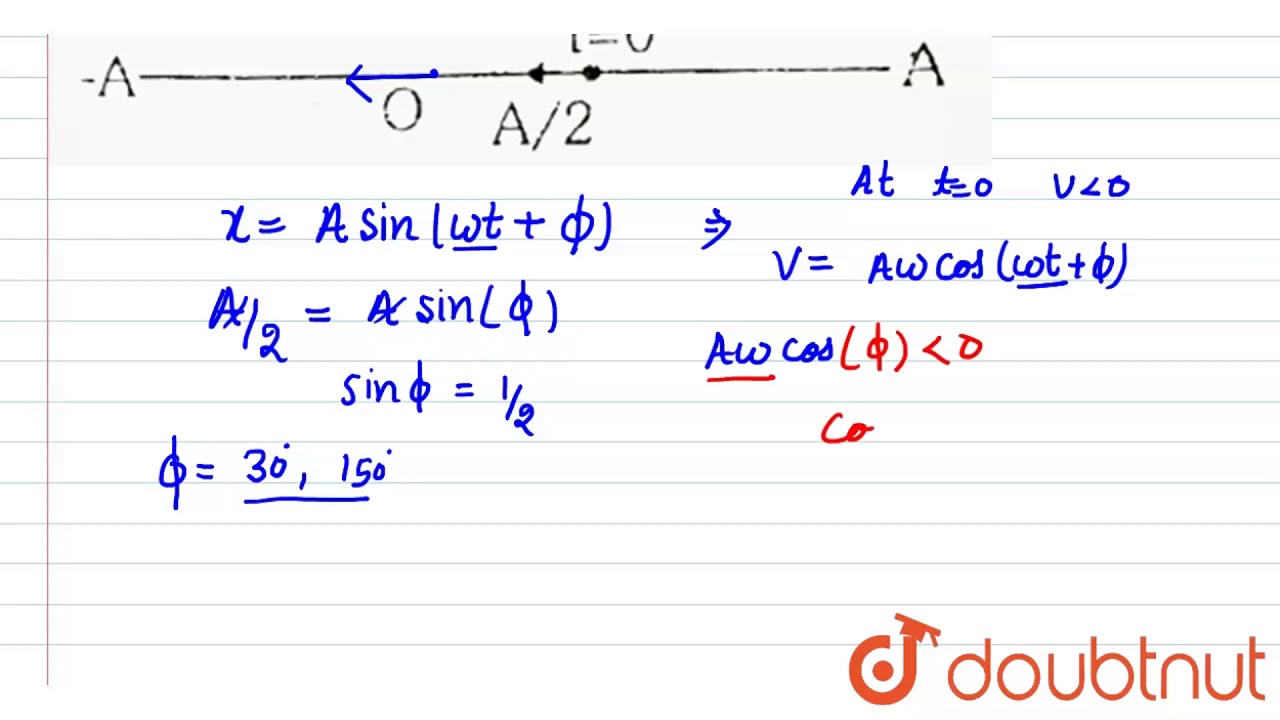 t=0
-A A
O A/2
At t=0 v<0
x = A sin(ωt + φ) ⇒
v = Aω cos(ωt + φ)
A/2 = A sin(φ)
Aω cos(φ) < 0
sin φ = 1/2
Co
φ = 30°, 150°
doubtnut